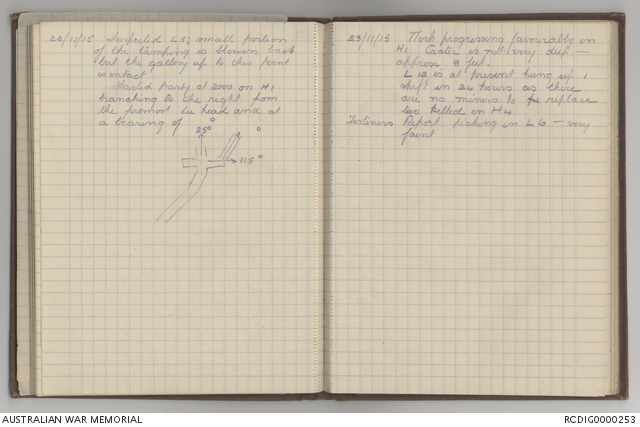 22/11/15 Inspected L5; small portion
of the tamping is blown back
but the gallery up to this point
is intact
Started party at 2000 on H1
branching to the right from
the foremost tee head and at
a bearing of °
25° °
115°
23/11/15 Work progressing favourably in
H1. Crater is not very deep —
approx 8 feet.
L 12 is at present hung up 1
shift in 24 hours as there
are no miners to replace
two killed in H4
Listeners Report picking in L6 — very
faint
AUSTRALIAN WAR MEMORIAL
RCDIG0000253